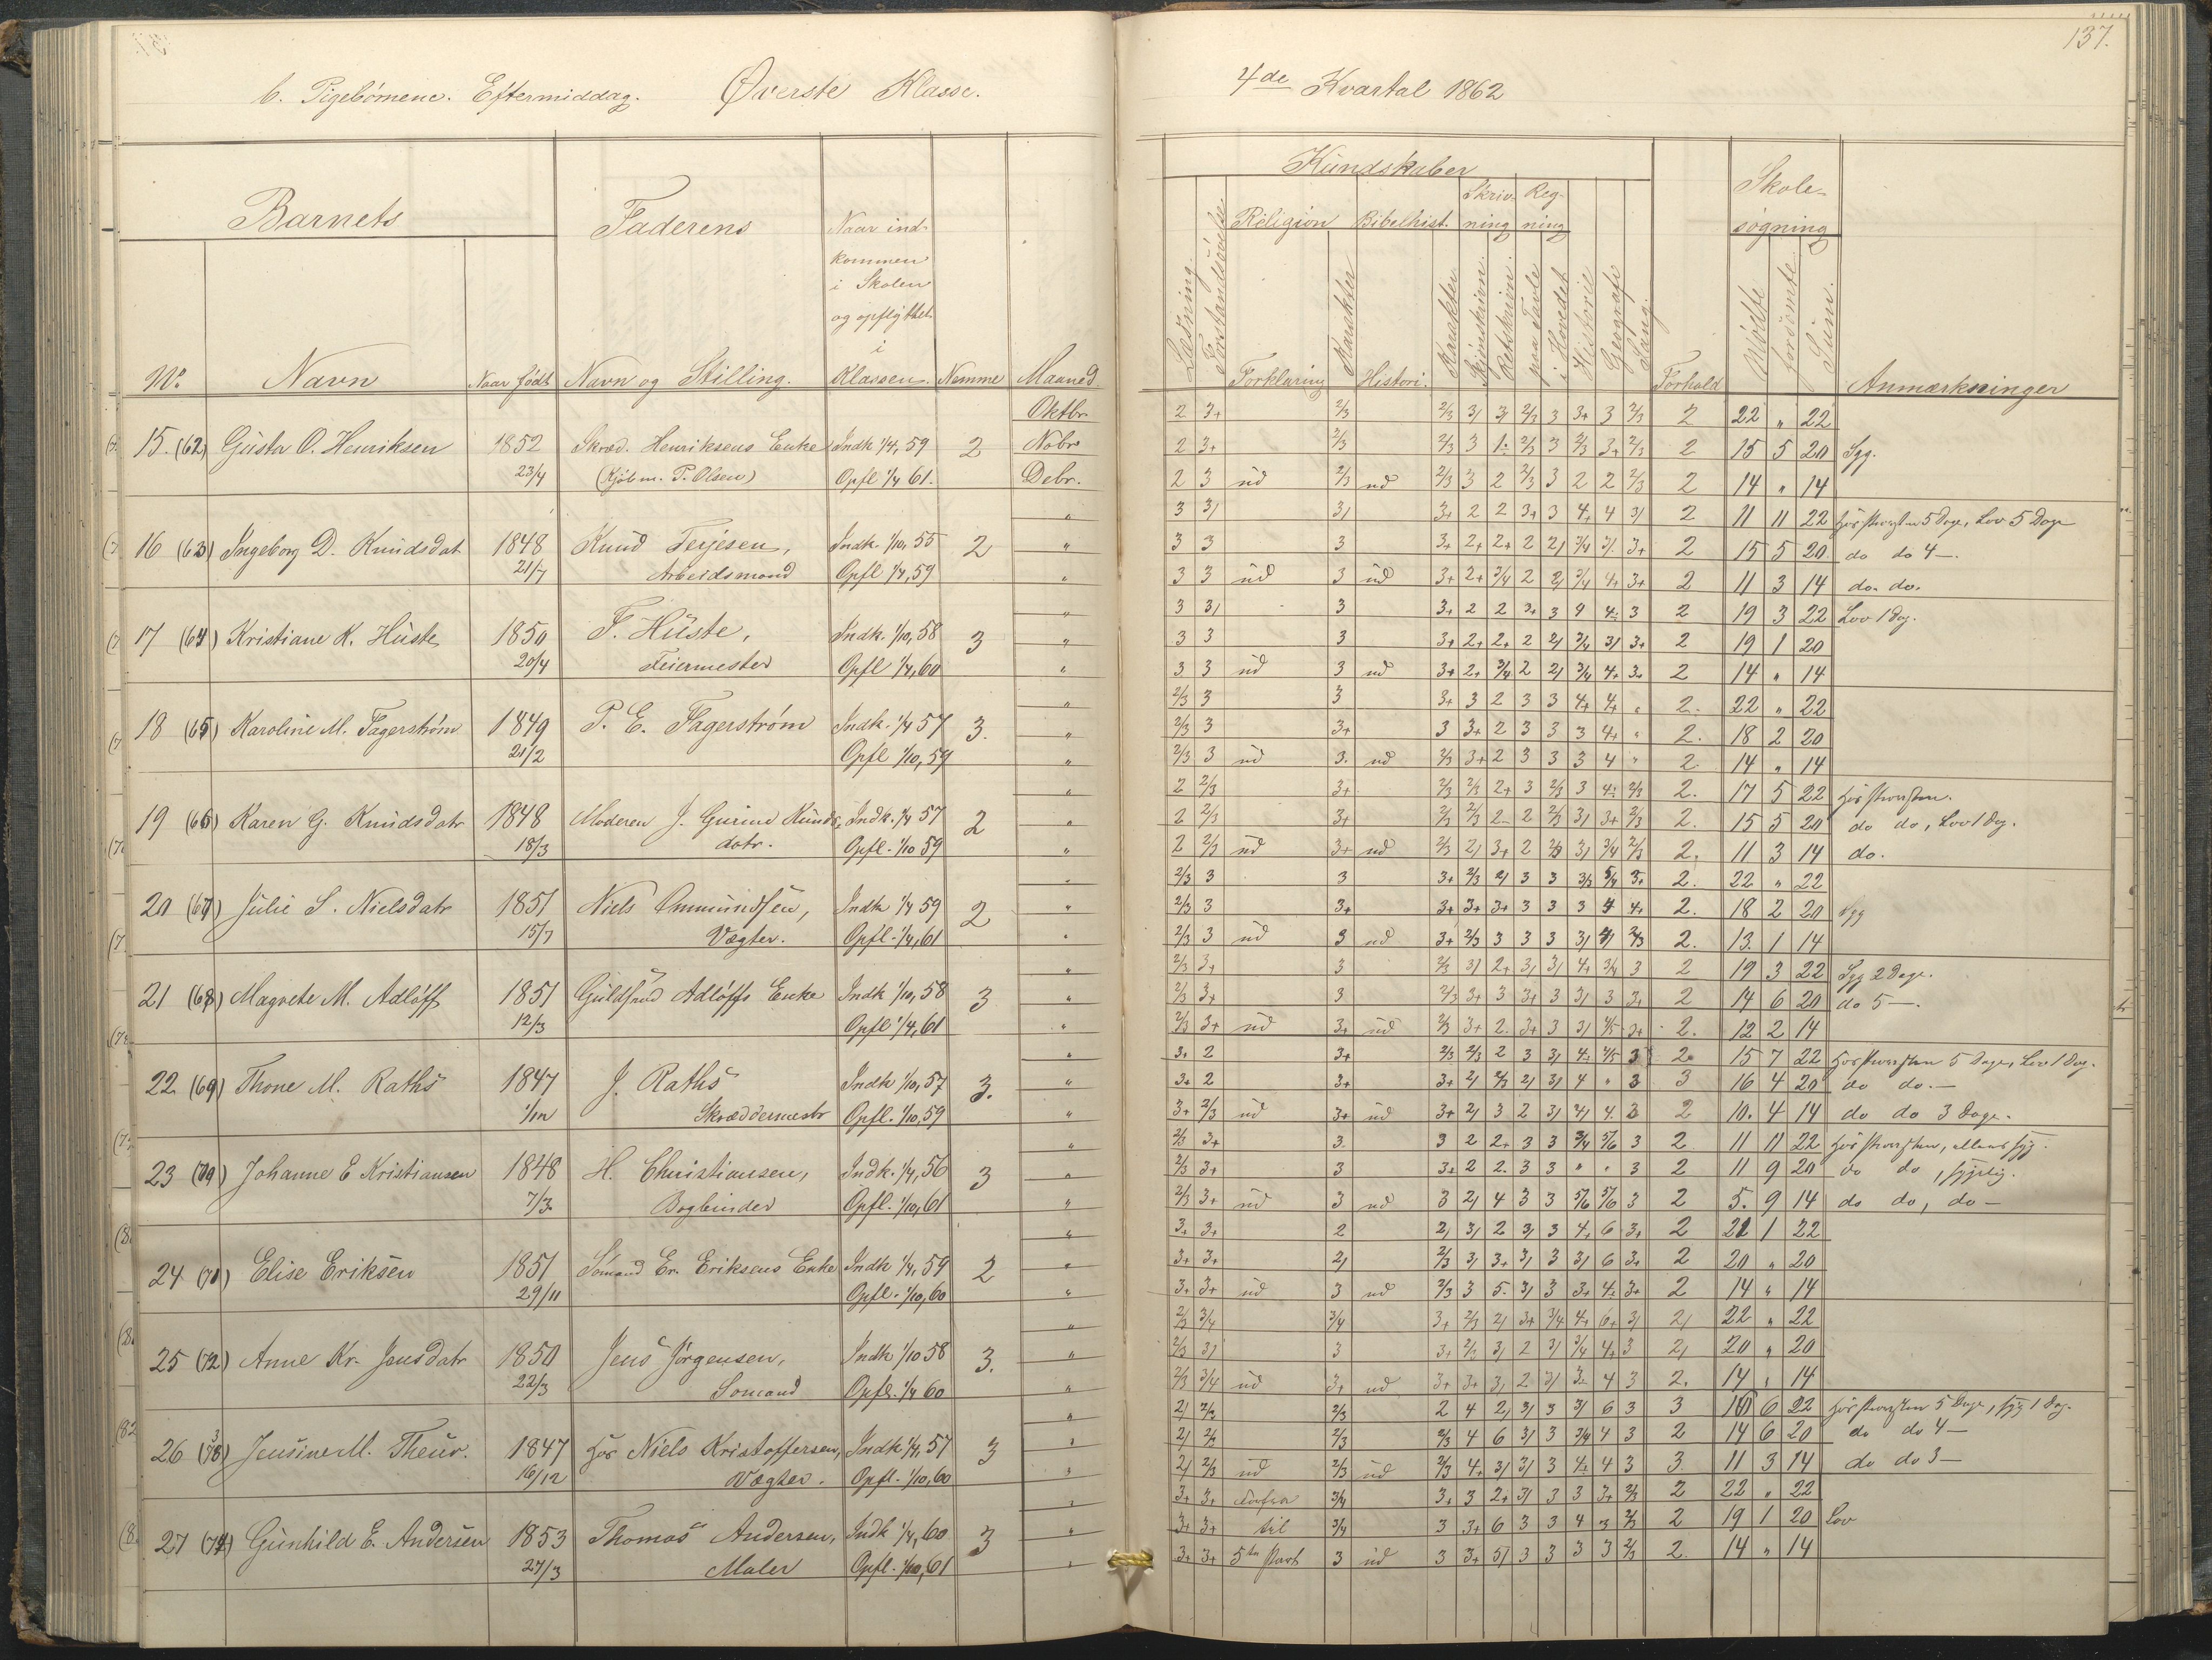 137.
b. Pigebørnene. Eftermiddag. Øverste Klasse.
4de Kvartal 1862
Barnets
Faderens
Naar ind-
kommen
i Skolen
og opflyttet
i
Klassen.
No. Navn Naar født Navn og Stilling. Nemme Maaned
Kundskaber
Læsning. Forstandsøvelse Religion Bibelhist. Skriv-ning Reg-ning
Forklaring Karakter Histori. Karakter Skjønskrivn. Retskrivn. paa Tavle i Hovedet Historie Geografi Sang.
Forhold
Skole-
søgning
Mødte forsømte Sum.
Anmærkninger
Oktbr. 2 3+ 2/3 2/3 3/ 3/ 2/3 3 3+ 3 2/3 2 22 " 22
15. (62) Gusta O. Henriksen 1852 Skræd. Henriksens Enke Indk 1/4, 59 2 Nobr. 2 3+ 2/3 2/3 3 2/3 3 2/3 3+ 2/3 2 15 5 20 Syg.
23/4 (Kjøbm. P. Olsen) Opfl 1/4 61. Debr. 2 3 ud 2/3 ud 2/3 3 2 2/3 3 2 2 2/3 2 14 " 14
" 3 3/ 3/ 3+ 2 2 3+ 3 4+ 4 3/ 2 11 11 22 5 Dage, Lov 5 Dage
16 (63) Ingeborg D. Knudsdat 1848 Knud Terjesen, Indk. 1/10, 55 2 " 3 3 3 3+ 2+ 2+ 2 2/ 3/4 3/ 3+ 2 15 5 20 do do 4 —.
21/7 Arbeidsmand Opfl 1/4, 59 " 3 3 ud 3 ud 3+ 2+ 3/4 2 2/ 3/4 4+ 3+ 2 11 3 14 do. do.
" 3 3/ 3 3+ 2 2 3+ 3 4 3 2 19 3 22 Lov 1 Dag.
17 (64) Kristiane K. Huste 1850 F. Huste, Indk. 1/10, 58 3 " 3 3 3 3+ 2+ 2+ 2 2/ 3/4 3/ 3+ 2 19 1 20
20/4 Feiermester Opfl 1/4, 60 " 3 3 ud 3 ud 3+ 2+ 3/4 2 2/ 3/4 4+ 3+ 2 14 " 14
" 2/3 3 3 3+ 3 2 3 3 4+ 4+ " 2. 22 " 22
18 (65) Karoline M. Fagerstrøm 1849 P. E. Fagerstrøm Indk. 1/4 57 3. " 2/3 3 3+ 3 3+ 2 3 3 3 4+ " 2. 18 2 20
21/2 Opfl 1/10, 59 " 2/3 3 ud 3. ud 2/3 3+ 2 3 3 3 4 " 2. 14 " 14
" 2 2/3 3+ 2/3 2/3 2+ 3 2/3 3 2/3 2. 17 5 22
19 (66) Karen G. Knudsdatr 1848 Moderen J. Gurine Knuds- Indk. 1/4 57 2 " 2 2/3 3+ 2/3 2/3 2 2 2/3 3/ 3+ 2/3 2. 15 5 20 do do, Lov 1 Dag.
18/3 datr. Opfl. 1/10 59 " 2 2/3 ud 3+ ud 2/3 2/ 3+ 2 2/3 3/ 3/4 2/3 2. 11 3 14 do.
" 2/3 3 3 3+ 2/3 2/ 3 3 2/3 3+ 2. 22 " 22
20 (67) Julie S. Nielsdatr 1851 Niels Ommundsen, Indk 1/4 59 2 " 2/3 3 3+ 3+ 3+ 3+ 3 3 3 4 4+ 2. 18 2 20 Syg
15/7 Vægter. Opfl. 1/4, 61 " 2/3 3 ud 3 ud 3+ 2/3 3 3 3 3/ 4/ 2/3 2. 13. 1 14
" 2/3 3+ 3 2/3 3/ 2+ 3/ 3/ 4+ 3/4 3 2 19 3 22 Syg 2 Dage.
21 (68) Magrete M. Adløff 1851 Guldsmed Adløffs Enke Indk 1/10, 58 3 " 2/3 3+ 3 2/3 3+ 3 3+ 3 3/ 3 3+ 2 14 6 20 do 5 —.
12/3 Opfl 1/4, 61 " 2/3 3+ ud 3+ ud 2/3 3+ 2. 3+ 3 3/ 4/5 3+ 2. 12 2 14
" 3+ 2 3+ 2/3 2/3 2 3 3/ 4/5 3 2 15 7 22 5 Dage, Lov 1 Dag.
22. (69) Thone M. Raths 1847 J. Raths Indk 1/10, 57 3. " 3+ 2 3+ 3+ 2/ 2/3 2/ 3/ 4 " 3 3 16 4 20 do do. —
Skræddermestr Opfl. 1/10, 59 " 3+ 2/3 ud 3+ ud 3+ 2/ 3 2 3/ 4. 3 2 10. 4 14 do do 3 Dage.
" 2/3 3+ 3. 3 2 2+ 3 3 3/4 5/6 3 2 11 11 22
23 (70) Johanne E Kristiansen 1848 H. Christiansen, Indk. 1/4, 56 3 " 2/3 3+ 3 3+ 2 2. 3 3 " " 3 2 11 9 20 do do
7/3. Bogbinder Opfl. 1/10, 61 " 2/3 3+ ud 3 ud 3 2/ 4 3 3 5/6 5/6 3 2 5. 9 14 do do, do —
" 3+ 3+ 2 2/ 3/ 2 3/ 3 4+ 6 3+ 2 21 1 22
24 (71) Elise Eriksen 1851 Sømand Er. Eriksens Enke Indk 1/4, 59 2 " 3+ 3+ 2/ 2/3 3/ 3+ 3/ 3 3/ 6 3+ 2 20 " 20
29/11 Opfl. 1/10, 60 " 3+ 3+ ud 3 ud 2/3 3 5. 3/ 3 3+ 3+ 2 14 " 14
" 2/3 3/4 3/4 3+ 2/3 2/ 3+ 3/4 4+ 6+ 3/ 2/ 22 " 22
25 (72) Anne Kr. Jensdatr 1850 Jens Jørgensen, Indk 1/10 58 3. " 2/3 3/ 3 3+ 2/3 3/ 2 3/ 3/4 4+ 3 2/ 20 " 20
22/3 Sømand Opfl. 1/4 60 " 2/3 3/4 ud 3+ ud 3+ 3+ 3/ 2 3/ 4 3 2. 14 " 14
" 2/ 2/3 2/3 2 4 2/ 3/ 3 3/ 6 3 3 16 6 22 5 Dage, syg 1 Dag.
26 (73) Jensine M. Theur. 1847 hos Niels Kristoffersen, Indk 1/4, 57 3 " 2/ 2/3 2/3 2/3 4 6 3/ 3 3/4 4 3 2 14 6 20 do do 4 —
16/12 Vægter. Opfl. 1/10, 60 " 2/ 2/3 ud 2/3 ud 2/3 4+ 3/ 3/ 3 4 3 3 11 3 14 do do 3 —
" 3+ 3+ 3/4 3+ 3 2+ 3/ 3 3 3+ 2/3 2 22 " 22
27 (74) Gunhild E. Andersen 1853 Thomas Andersen, Indk 1/4, 60 3 " 3+ 3+ til 3/4 3 3+ 6 3 3 4 3 2/3 2 19 1 20 Lov
27/3 Maler Opfl. 1/10, 61 " 3+ 3+ 5te Part 3 ud 3 3+ 5/ 3 3 3 3 2/3 2. 14 " 14